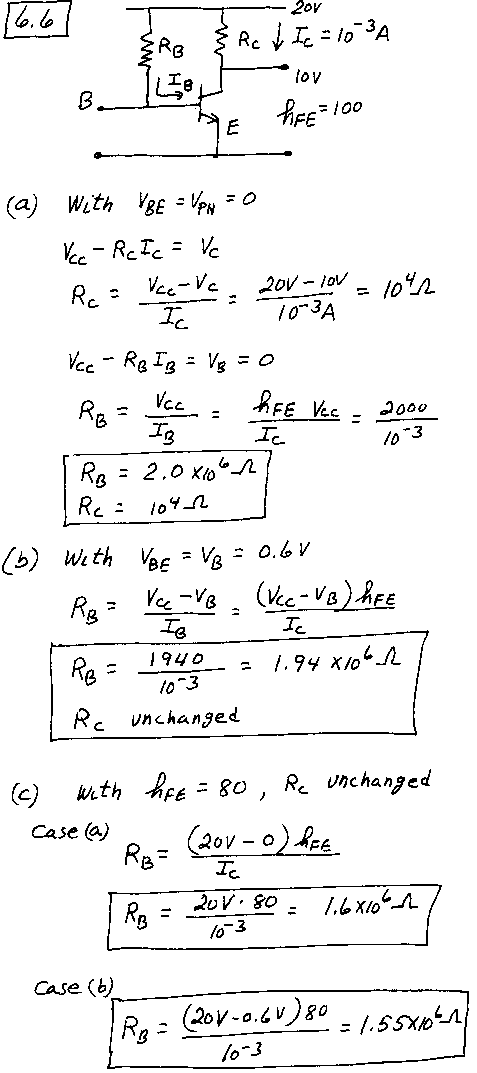 6.6
20V
R_B
R_C ↓ I_C = 10^-3 A
I_B
10V
B
h_FE = 100
E
(a) With V_BE = V_PN = 0
V_CC - R_C I_C = V_C
R_C = (V_CC - V_C) / I_C = (20V - 10V) / 10^-3 A = 10^4 Ω
V_CC - R_B I_B = V_B = 0
R_B = V_CC / I_B = h_FE V_CC / I_C = 2000 / 10^-3
R_B = 2.0 X10^6 Ω
R_C = 10^4 Ω
(b) With V_BE = V_B = 0.6 V
R_B = (V_CC - V_B) / I_B = (V_CC - V_B) h_FE / I_C
R_B = 1940 / 10^-3 = 1.94 X10^6 Ω
R_C unchanged
(c) With h_FE = 80, R_C unchanged
Case (a)
R_B = (20V - 0) h_FE / I_C
R_B = 20V · 80 / 10^-3 = 1.6X10^6 Ω
Case (b)
R_B = (20V - 0.6V) 80 / 10^-3 = 1.55X10^6 Ω